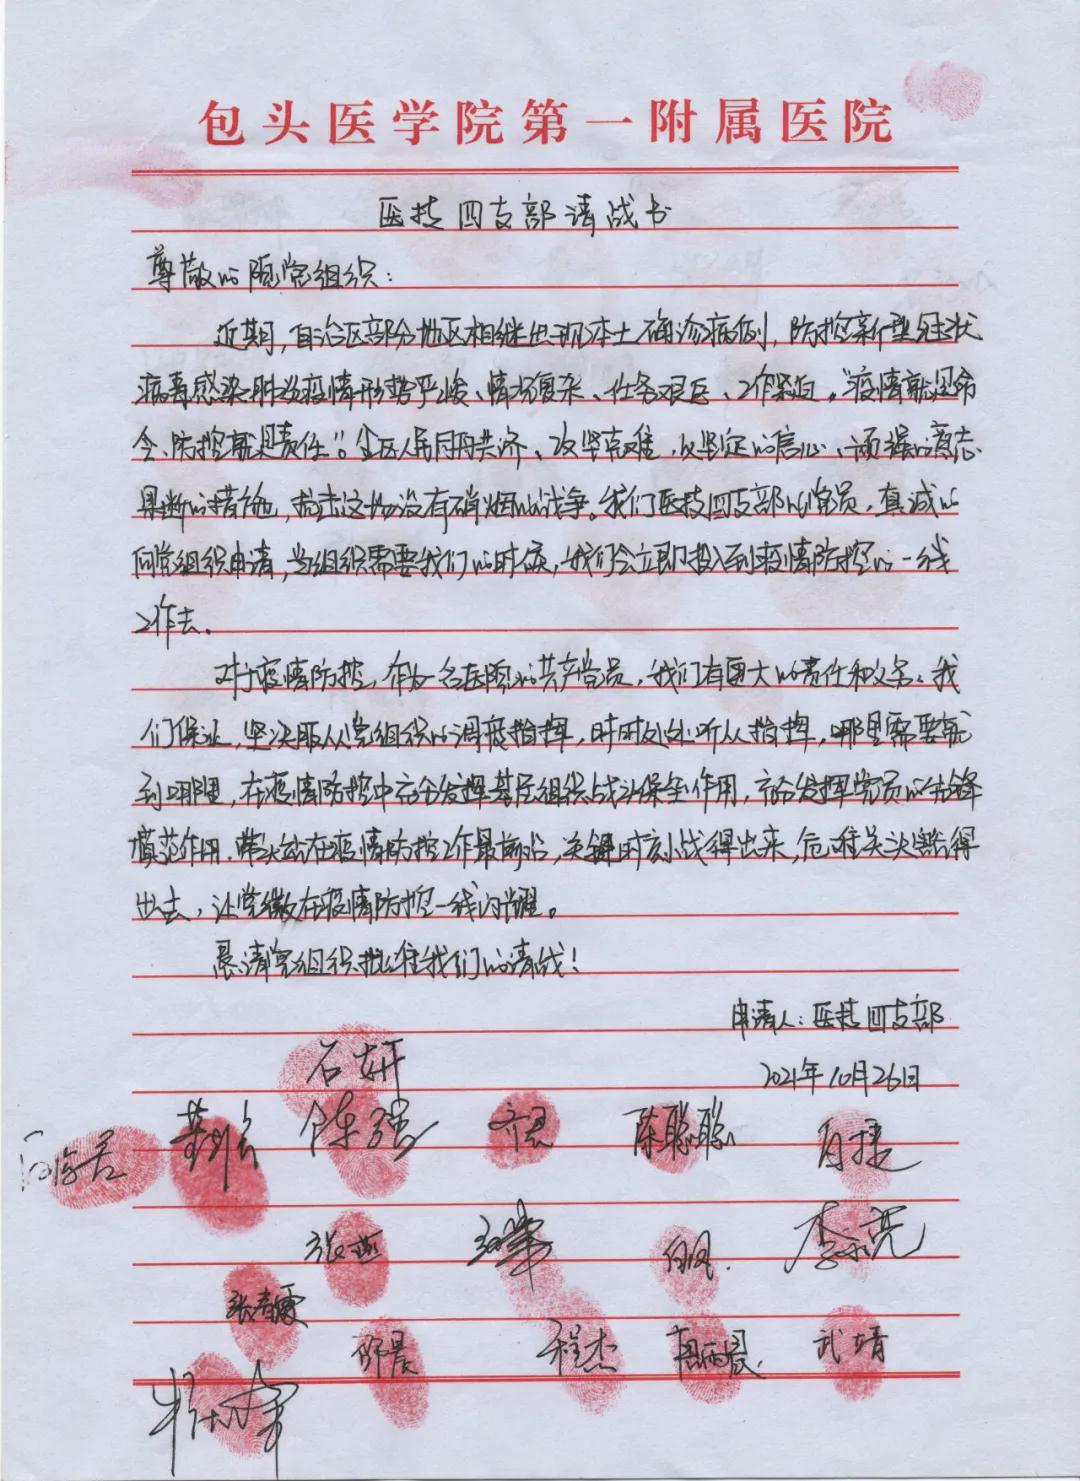 包头医学院第一附属医院
医技四支部请战书
尊敬的院党组织：
近期，自治区部分地区相继出现本土确诊病例，防控新型冠状
病毒感染肺炎疫情形势严峻、情况复杂、任务艰巨、工作紧迫。“疫情就是命
令、防控就是责任”。全区人民同舟共济、攻坚克难，以坚定的信心、顽强的意志
果断的措施，抗击这场没有硝烟的战争。我们医技四支部的党员，真诚的
向党组织申请，当组织需要我们的时候，我们会立即投入到疫情防控的一线
工作去。
对于疫情防控，作为一名医院的共产党员，我们有更大的责任和义务。我
们保证，坚决服从党组织的调度指挥，时时处处听从指挥，哪里需要就
到哪里，在疫情防控中充分发挥基层组织战斗堡垒作用，充分发挥党员的先锋
模范作用，带头站在疫情防控工作最前沿，关键时刻战得出来，危难关头豁得
出去，让党徽在疫情防控一线闪耀。
恳请党组织批准我们的请战！
申请人：医技四支部
2021年10月26日
石妍
陈强 齐思 陈聪聪 肖捷
张燕 白凤 李亮
张春雷
舒晨 程杰 武靖